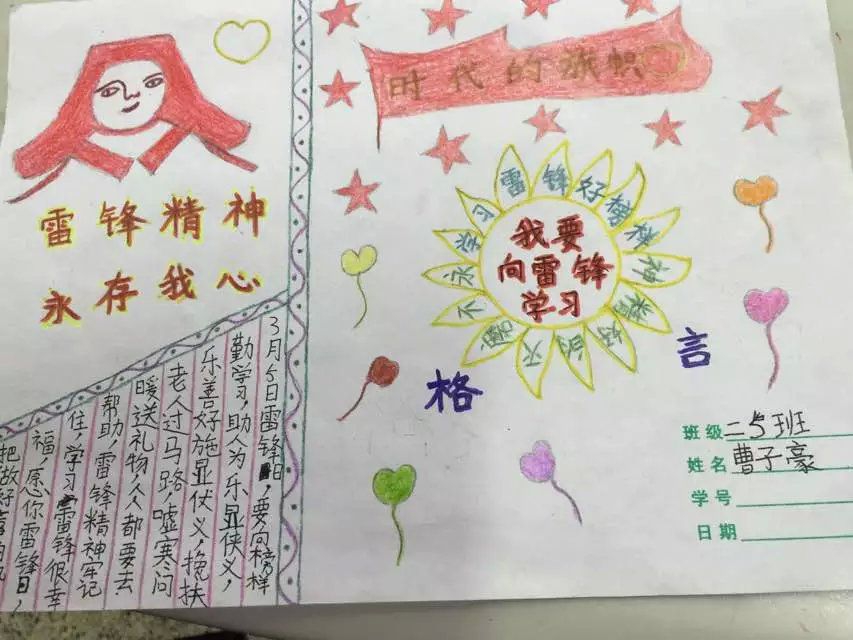 雷锋精神
永存我心
时代的旗帜
学习雷锋好榜样
我要
向雷锋
学习
格言
3月5日雷锋日，要向榜样
勤学习，助人为乐显侠义，
乐善好施显仗义，搀扶
老人过马路，嘘寒问
暖送礼物，人人都要去
帮助，雷锋精神牢记
住，学习雷锋很幸
福，愿你雷锋日，
把做好事
班级二5班
姓名曹子豪
学号
日期